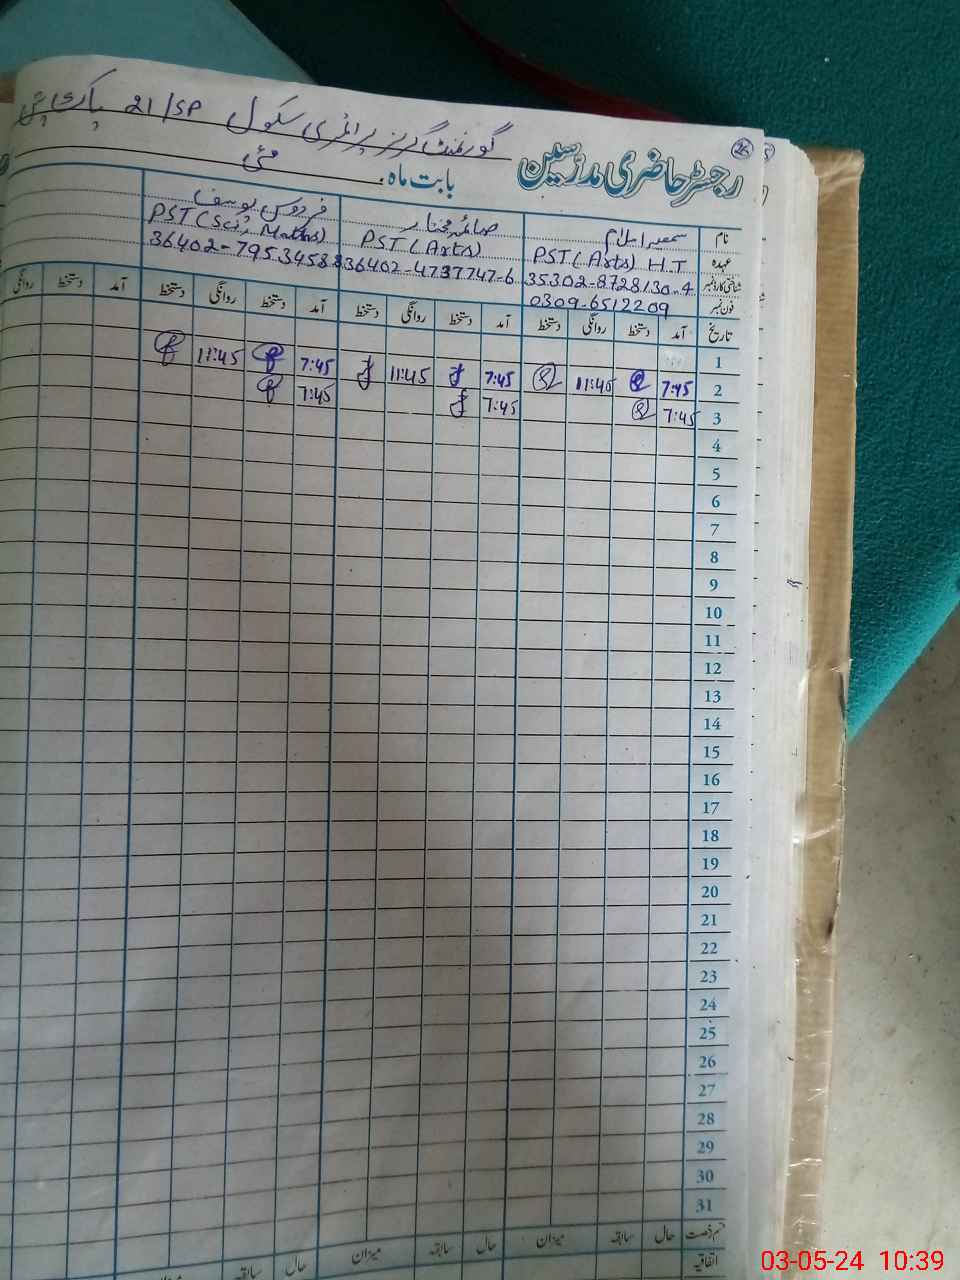 26
گورنمنٹ گرلز پرائمری سکول 21/SP
رجسٹر حاضری مدرسین
بابت ماہ مئی
نام سمعیہ اسلام صائمہ مختار فردوس یوسف
عہدہ PST (Arts) H.T PST (Arts) PST (Sci, Maths)
شناختی کارڈ نمبر 35302-8728130-4 36402-4737747-6 36402-7953458-8
فون نمبر 0309-6512209
تاریخ آمد دستخط روانگی دستخط آمد دستخط روانگی دستخط آمد دستخط روانگی دستخط آمد دستخط روانگی
1
2 7:45 11:45 7:45 11:45 7:45 11:45
3 7:45 7:45 7:45
4
5
6
7
8
9
10
11
12
13
14
15
16
17
18
19
20
21
22
23
24
25
26
27
28
29
30
31
قسم رخصت حال سابقہ میزان حال سابقہ میزان حال سابقہ میزان
اتفاقیہ
03-05-24 10:39